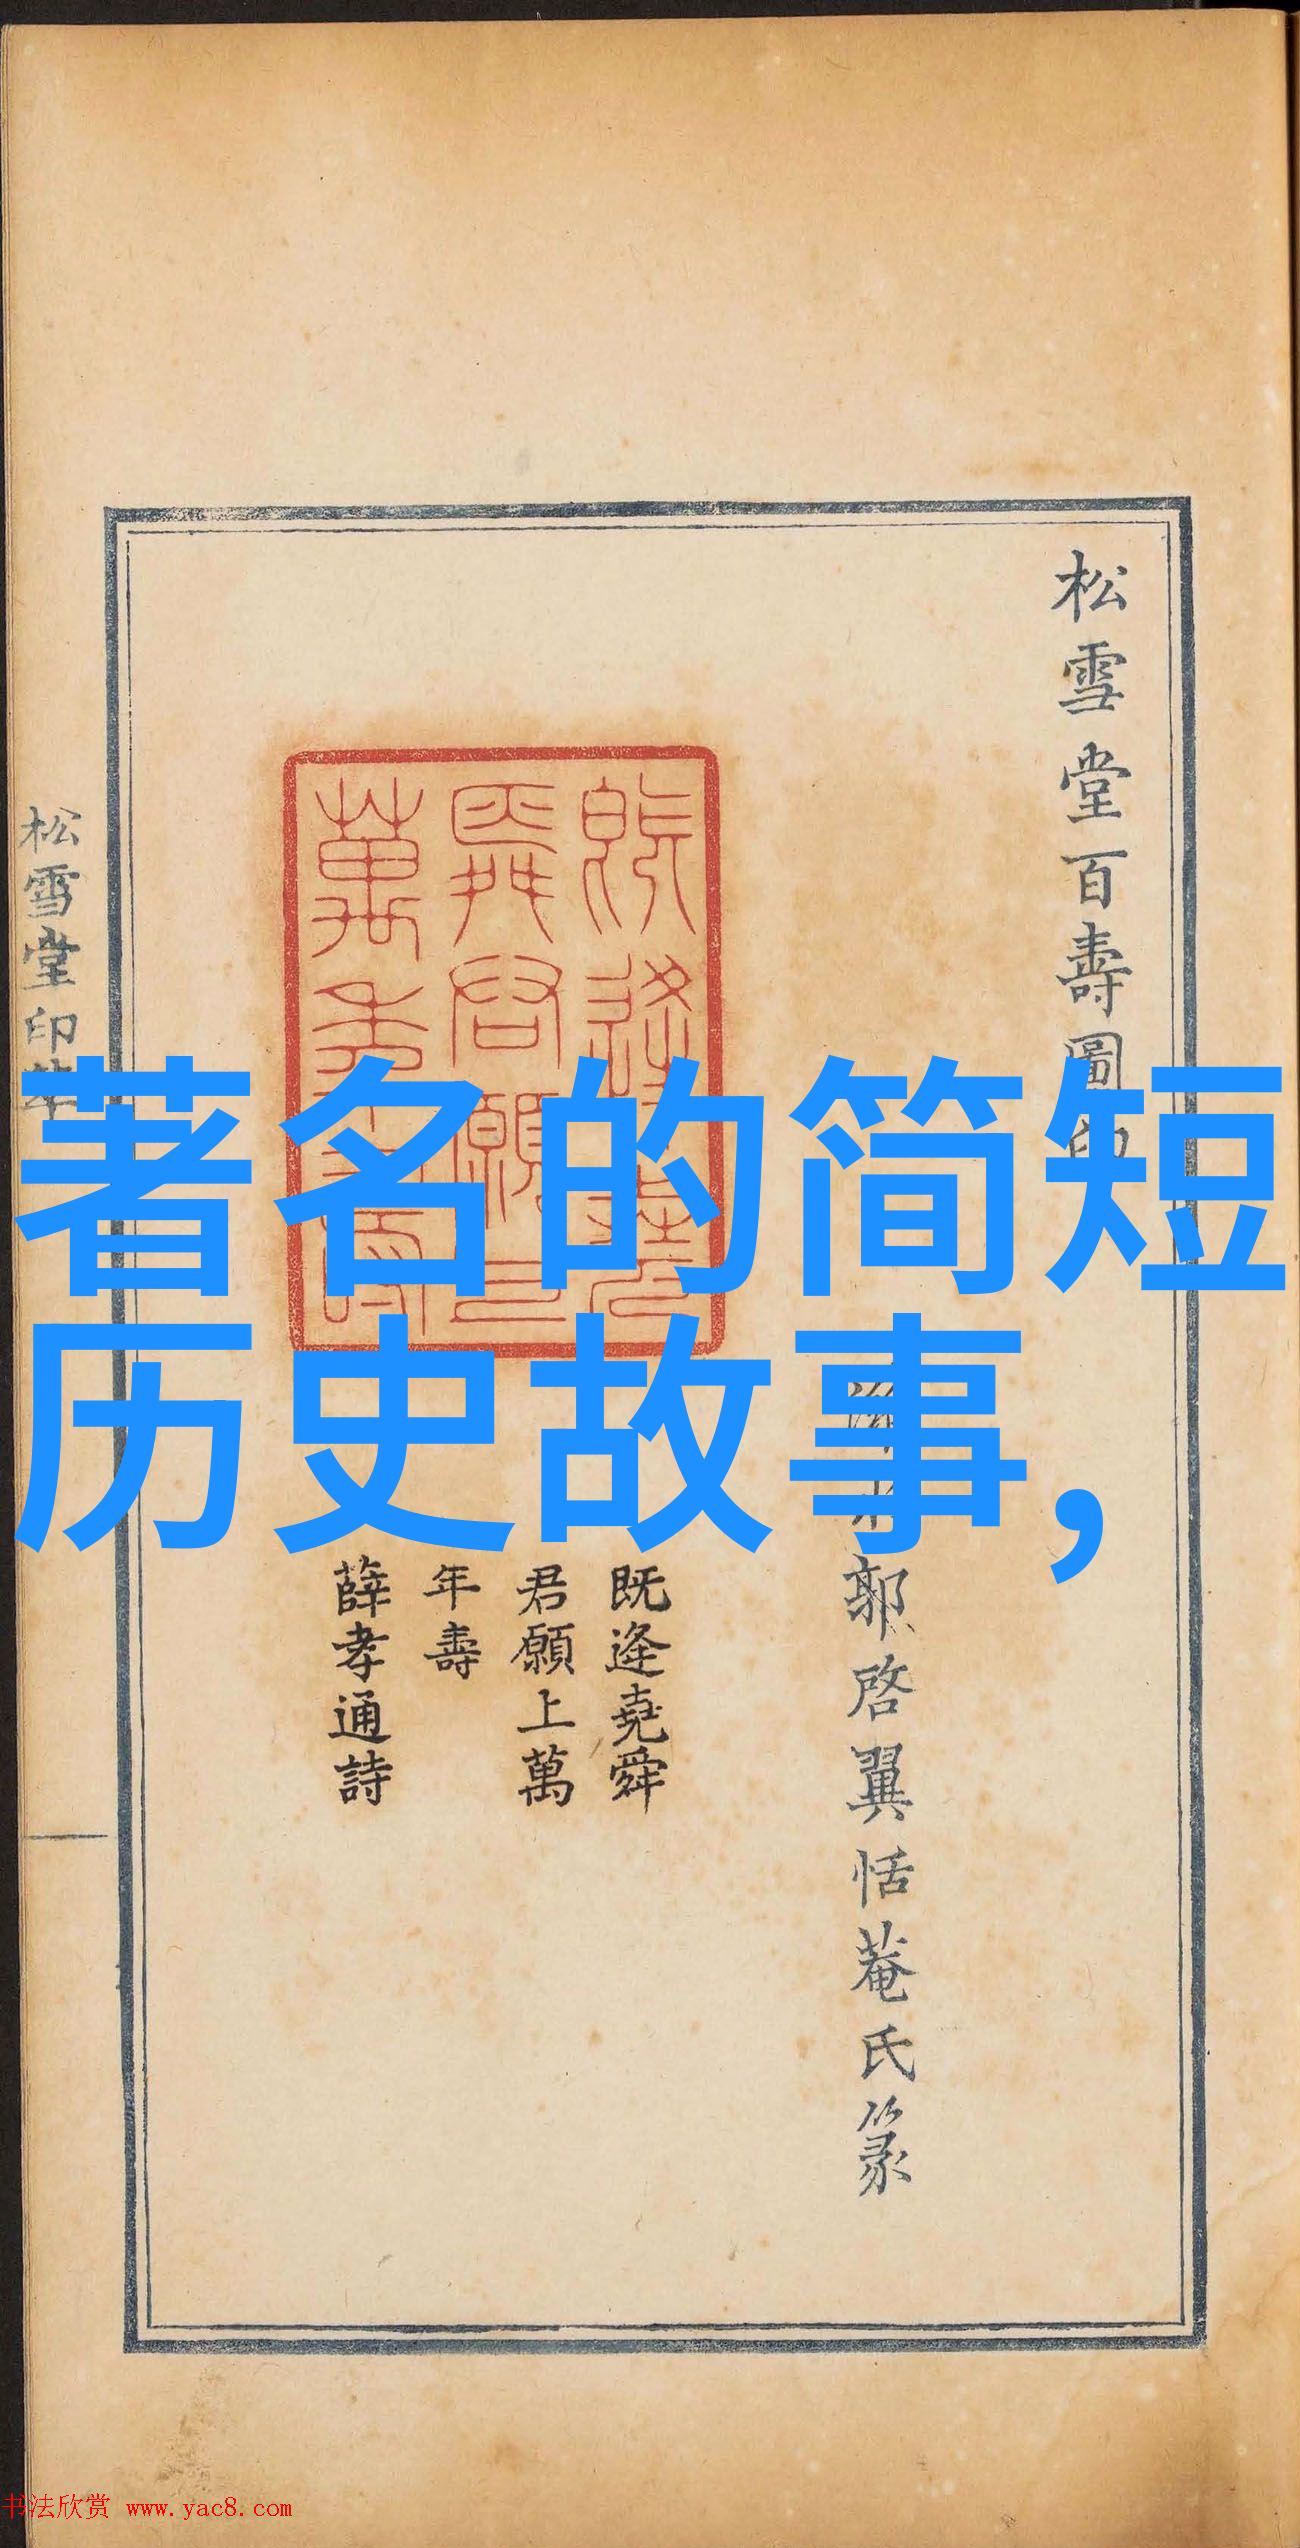 著名的简短
历史故事,
松雪堂百壽圖印
郭啓翼恬菴氏篆
既逢堯舜
君願上萬
年壽
薛孝通詩
松雪堂印萃
书法欣赏 www.yac8.com